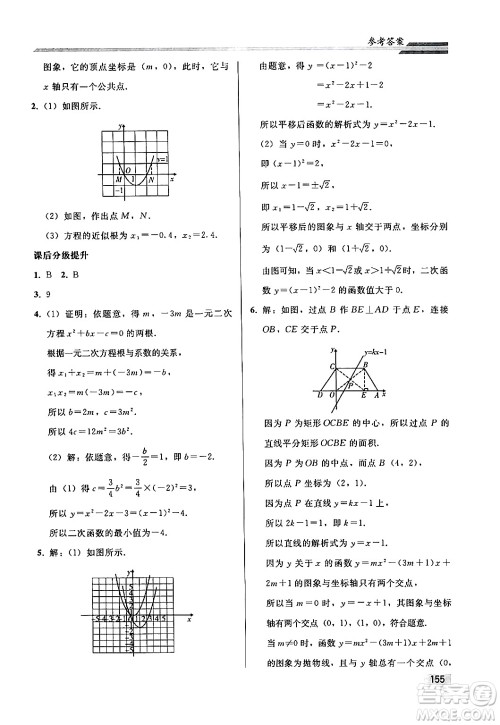 参考答案
图象，它的顶点坐标是（m，0），此时，它与
x 轴只有一个公共点．
2.（1）如图所示．
y
y=1
M
O
1
N
x
-1
（2）如图，作出点 M，N．
（3）方程的近似根为 x₁=-0.4，x₂=2.4.
课后分级提升
1. B　2. B
3. 9
4.（1）证明：依题意，得 m，-3m 是一元二次
方程 x²+bx-c=0 的两根．
根据一元二次方程根与系数的关系，
得 x₁+x₂=m+(-3m)=-b，
x₁x₂=m×(-3m)=-c．
所以 b=2m，c=3m²．
所以 4c=12m²=3b²．
（2）解：依题意，得 -b/2=1，即 b=-2．
由（1）得 c=3/4 b²=3/4×(-2)²=3．
所以 y=x²-2x-3=(x-1)²-4．
所以二次函数的最小值为-4．
5. 解：（1）如图所示．
由题意，得 y=(x-1)²-2
=x²-2x+1-2
=x²-2x-1．
所以平移后函数的解析式为 y=x²-2x-1．
（2）当 y=0 时，x²-2x-1=0，
即 (x-1)²=2．
所以 x-1=±√2，
即 x₁=1-√2，x₂=1+√2．
所以平移后的图象与 x 轴交于两点，坐标分别
为（1-√2，0）和（1+√2，0）．
由图可知，当 x<1-√2 或 x>1+√2 时，二次函
数 y=(x-1)²-2 的函数值大于 0．
6. 解：如图，过点 B 作 BE⊥AD 于点 E，连接
OB，CE 交于点 P．
y
y=kx-1
C
B
P
D
O
E
A
x
因为 P 为矩形 OCBE 的中心，所以过点 P 的
直线平分矩形 OCBE 的面积．
因为 P 为 OB 的中点，而 B（4，2），
所以点 P 的坐标为（2，1）．
所以 2k-1=1，则 k=1．
所以直线的解析式为 y=x-1．
因为函数 y=mx²-(3m+1)x+
2m+1 的图象与坐标轴有两个交点，
所以当 m=0 时，y=-x+1，其图象与坐标
轴有两个交点（0，1），（1，0）；
当 m≠0 时，函数 y=mx²-(3m+1)x+2m+1
的图象为抛物线，且与 y 轴总有一个交点（0，
155